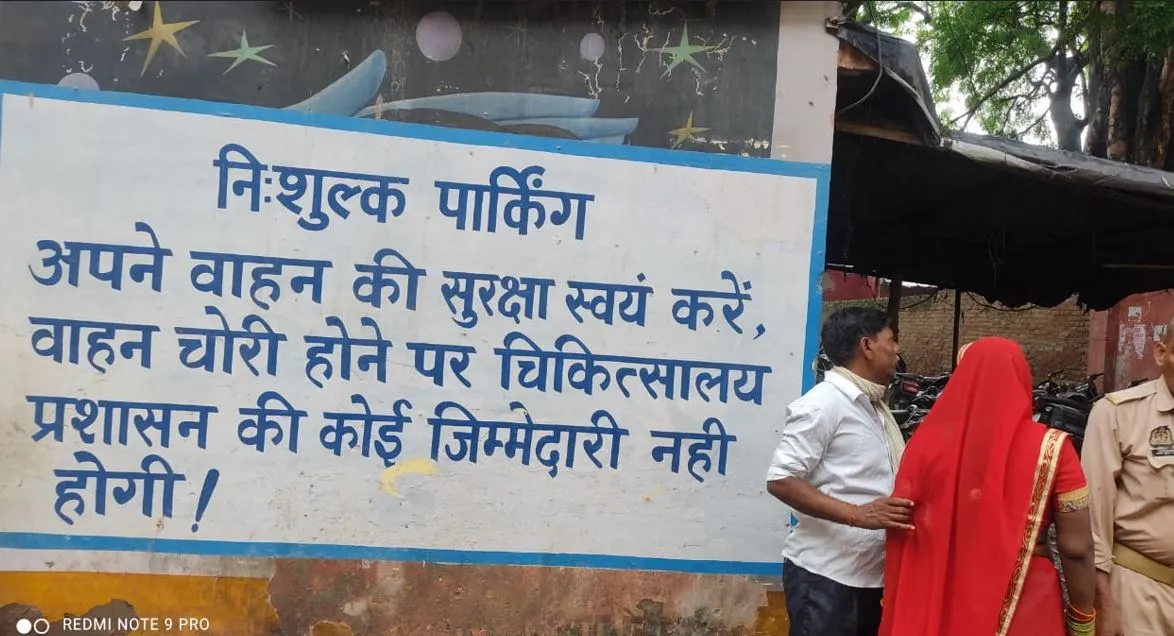 निःशुल्क पार्किंग
अपने वाहन की सुरक्षा स्वयं करें,
वाहन चोरी होने पर चिकित्सालय
प्रशासन की कोई जिम्मेदारी नही
होगी!
REDMI NOTE 9 PRO